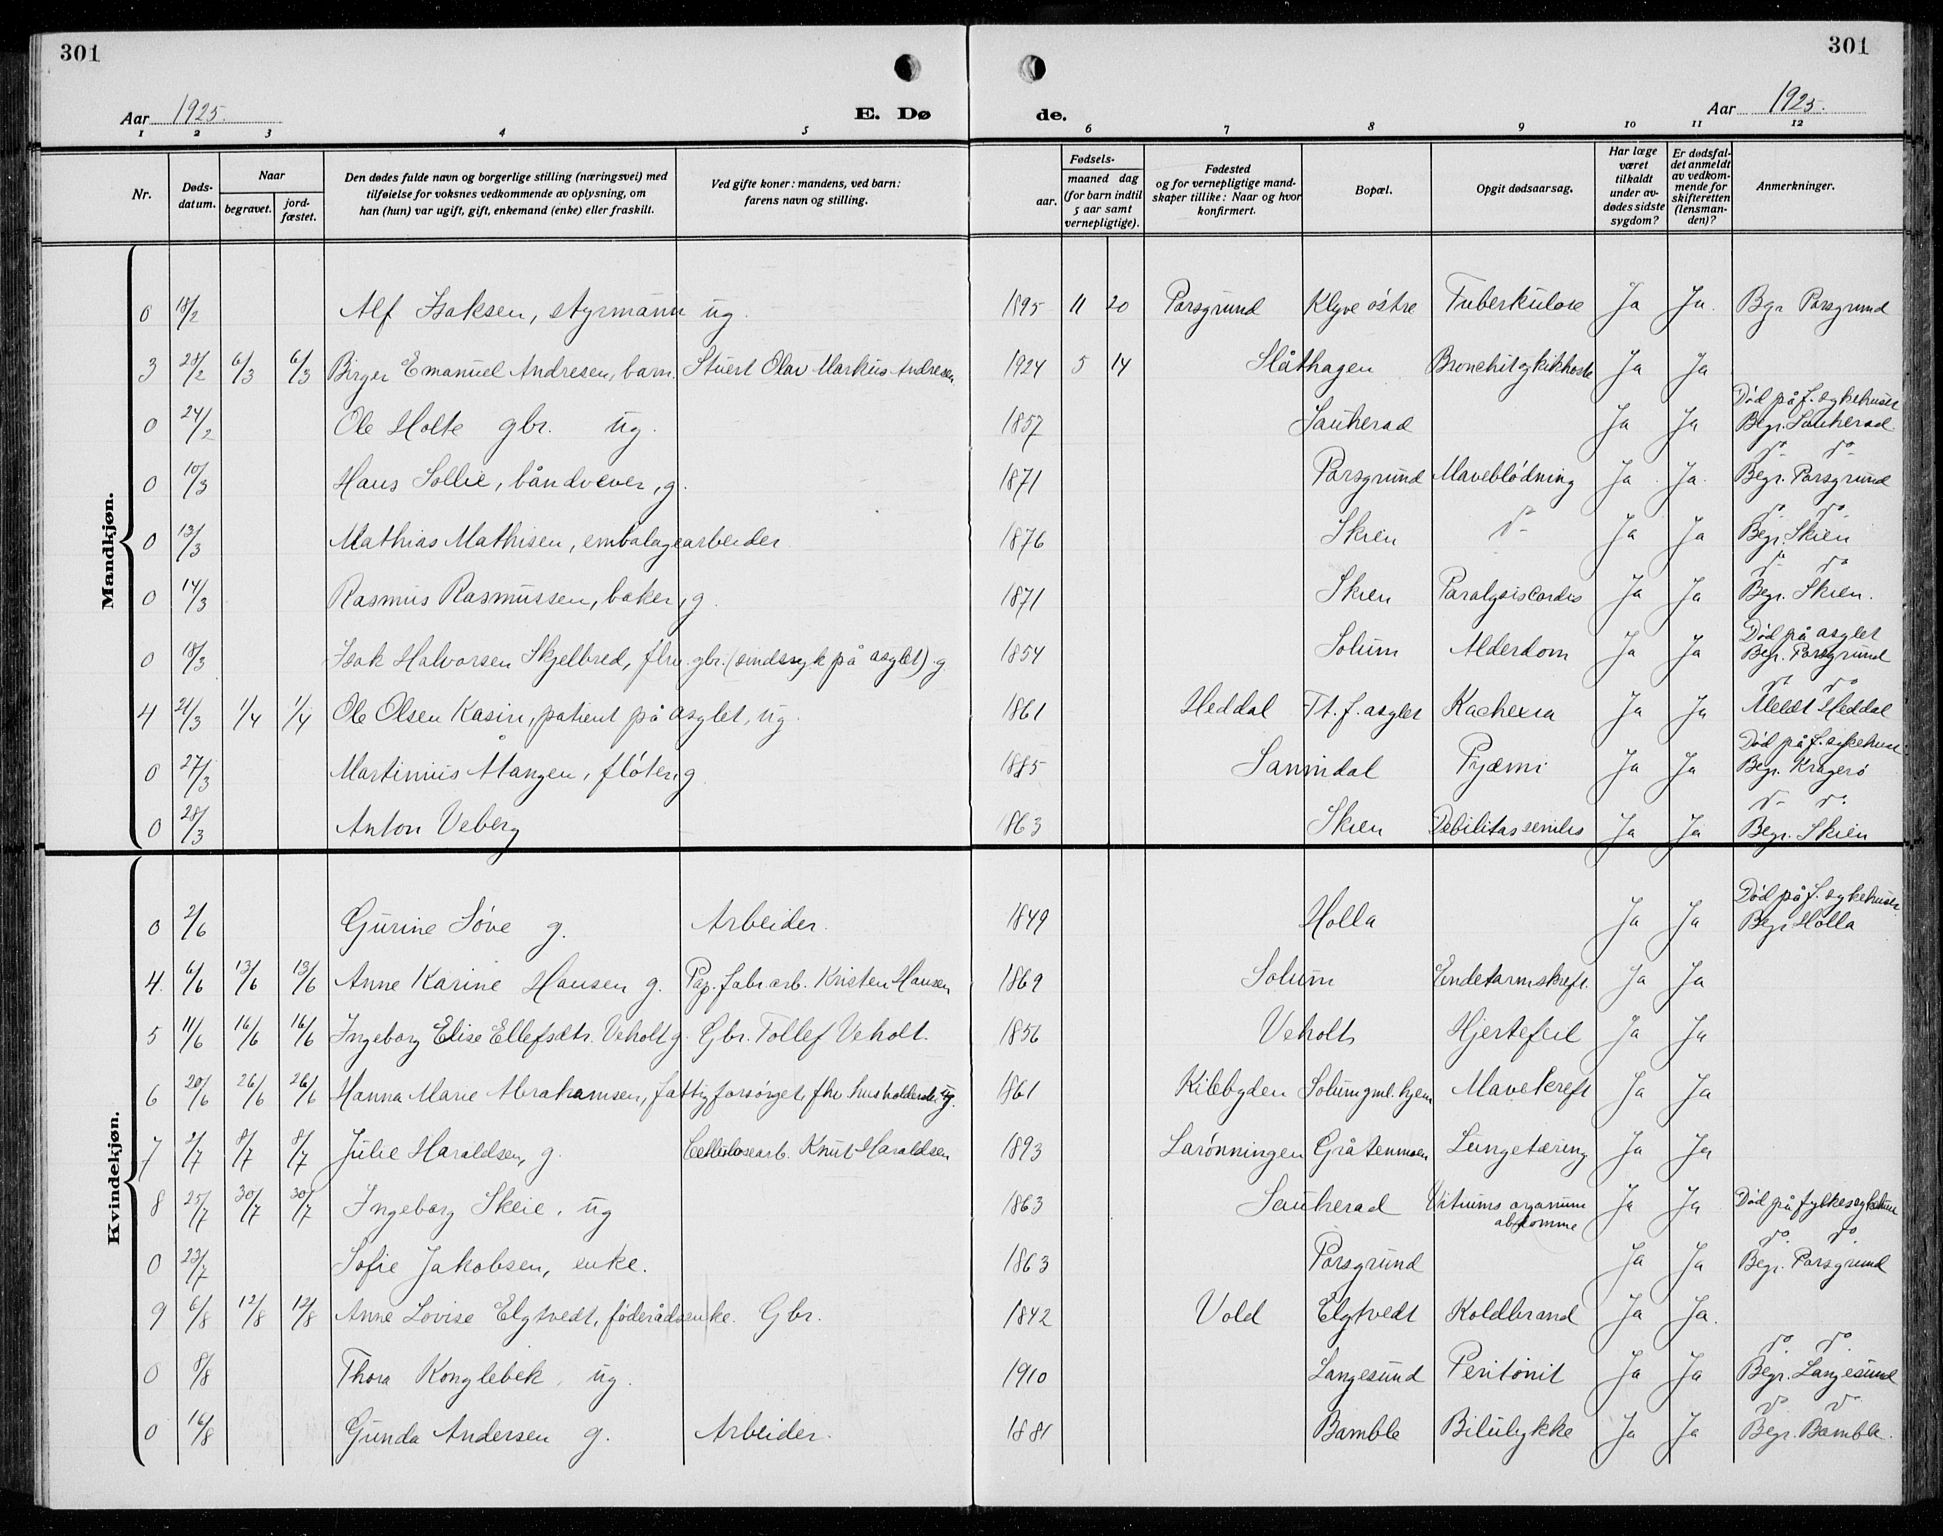 301
301
Aar 1925.
E. Dø
de.
Aar 1925.
1 2 3 4 5 6 7 8 9 10 11 12
Nr.
Døds-
datum.
Naar
begravet.
jord-
fæstet.
Den dødes fulde navn og borgerlige stilling (næringsvei) med
tilføielse for voksnes vedkommende av oplysning, om
han (hun) var ugift, gift, enkemand (enke) eller fraskilt.
Ved gifte koner: mandens, ved barn:
farens navn og stilling.
Fødsels-
aar.
maaned dag
(for barn indtil
5 aar samt
vernepligtige).
Fødested
og for vernepligtige mand-
skaper tillike: Naar og hvor
konfirmert.
Bopæl.
Opgit dødsaarsag.
Har læge
været
tilkaldt
under av-
dødes sidste
sygdom?
Er dødsfal-
det anmeldt
av vedkom-
mende for
skifteretten
(lensman-
den)?
Anmerkninger.
Mandkjøn.
0 18/2 Alf Isaksen, styrmann ug. 1895 11 20 Porsgrund Klyve østre Tuberkulose Ja Ja. Bgr Porsgrund
3 28/2 6/3 6/3 Birger Emanuel Andresen, barn. Stuert Olav Markus Andresen 1924 5 14 Slåthagen Bronchit og kikhoste Ja Ja
Død på f. sykehuset
0 24/2 Ole Holte gbr. ug. 1857 Sauherad Ja Ja Begr. Sauherad
do do
0 10/3 Hans Sollie, båndvever, g. 1871 Porsgrund Maveblødning Ja Ja. Begr. Porsgrund
do do
0 13/3 Mathias Mathisen, embalagearbeider 1876 Skien do Ja Ja Begr. Skien
do do
0 14/3 Rasmus Rasmussen, baker, g. 1871 Skien Paralysis Cordis Ja Ja Begr. Skien.
Død på asylet
0 18/3 Isak Halvorsen Skjelbred, fhv. gbr. (sindssyk på asylet) g 1854 Solum Alderdom Ja Ja Begr. Porsgrund
do do
4 21/3 1/4 1/4 Ole Olsen Kasin, patient på asylet, ug. 1861 Heddal Tt. f. asylet Kachexia Ja Ja Meldt Heddal
Død på f. sykehuset
0 27/3 Martinius Mangen, fløter, g 1885 Sannidal Pyæmi Ja Ja Begr. Kragerø
do do
0 28/3 Anton Veberg 1863 Skien Debilitas senilis Ja Ja Begr. Skien
Kvindekjøn.
Død på f. sykehuset.
0 2/6 Gurine Søve g. Arbeider. 1849 Holla Ja Ja Begr Holla
4. 6/6 13/6 13/6 Anne Karine Hansen g. Pap. fabr. arb. Kristen Hansen 1869 Solum Endetarmskreft Ja Ja
5 11/6 16/6 16/6 Ingeborg Elise Ellefsdtr. Veholt g. Gbr. Tollef Veholt. 1856 Veholt Hjertefeil Ja Ja
6 20/6 26/6 26/6 Hanna Marie Abrahamsen, fattigforsørget, fhv. husholderske ug. 1861 Kilebygden Solum gml. hjem Mavekreft Ja Ja
7 2/7 8/7 8/7 Julie Haraldsen, g. Cellulosearb. Knut Haraldsen 1893 Larønningen Gråtenmoen Lungetæring Ja Ja
8 25/7 30/7 30/7 Ingeborg Skeie, ug 1863 Sauherad Vitiums organum Ja Ja Død på fylkessykehuset
do do
0 23/7 Sofie Jakobsen, enke. 1863 Porsgrund Ja Ja Begr. Porsgrund
9 6/8 12/8 12/8 Anne Lovise Elgtvedt, føderådsenke. Gbr. 1842 Vold Elgtvedt Koldbrand Ja Ja.
do do
0 8/8 Thora Konglebek, ug. 1910 Langesund Peritonit Ja Ja Begr. Langesund
do do
0 16/8 Gunda Andersen g. Arbeider. 1881 Bamble Bilulykke Ja Ja Begr. Bamble.